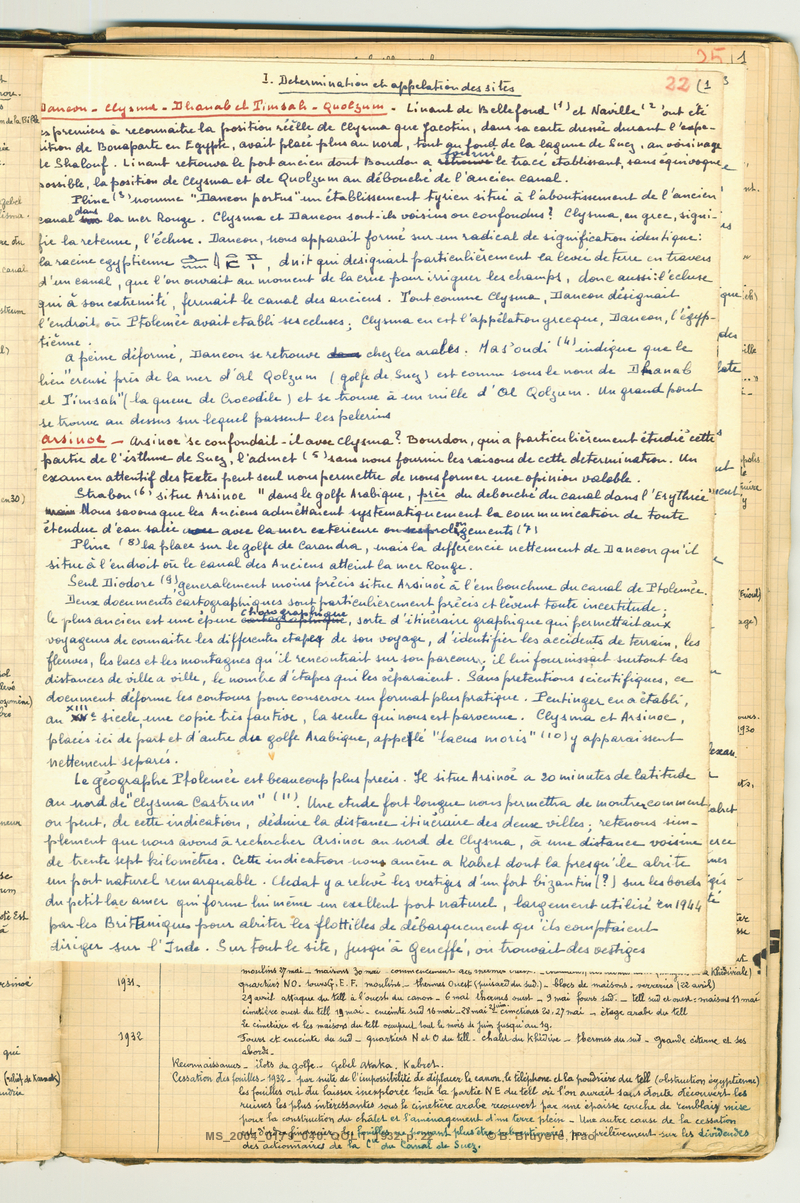 25 | 1
22 (1
I. Determination et appelation des sites
Daneon - Clysma - Dhanab et Timsah - Quolzum - Linant de Bellefond (1) et Naville (2 ont été
es premiers à reconnaitre la position réelle de Clysma que Jacotin, dans sa carte dressée durant l'expé-
ition de Bonaparte en Egypte, avait placé plus au nord, tout au fond de la lagune de Suez, au voisinage
de Shalouf. Linant retrouva le port ancien dont Bourdon a fourni le tracé établissant, sans équivoque
possible, la position de Clysma et de Quolzum au débouché de l'ancien canal.
Pline (3) nomme "Daneon portus" un établissement tyrien situé à l'aboutissement de l'ancien
canal dans la mer Rouge. Clysma et Daneon sont-ils voisins ou confondus? Clysma, en grec, signi-
fie la retenue, l'écluse. Daneon, nous apparait formé sur un radical de signification identique:
la racine egyptienne , dnit qui designait particulièrement la levée de terre en travers
d'un canal, que l'on ouvrait au moment de la crue pour irriguer les champs, donc aussi: l'écluse
qui à son extremité, fermait le canal des anciens. Tout comme Clysma, Daneon désignait
l'endroit où Ptolemée avait etabli ses ecluses; Clysma en est l'appélation grecque, Daneon, l'égyp-
tienne.
A peine déformé, Daneon se retrouve chez les arabes. Mas'oudi (4) indique que le
lieu "creusé près de la mer d'Al Qolzum (golfe de Suez) est connu sous le nom de Dhanab
et Timsah" (la queue de Crocodile) et se trouve à un mille d'Al Qolzum. Un grand pont
se trouve au dessus sur lequel passent les pelerins
Arsinoe - Arsinoe se confondait-il avec Clysma? Bourdon, qui a particulièrement étudié cette
partie de l'isthme de Suez, l'admet (5) sans nous fournir les raisons de cette determination. Un
examen attentif des textes peut seul nous permettre de nous former une opinion valable.
Strabon (6) situe Arsinoe "dans le golfe Arabique, près du debouché du canal dans l'Erythrée"
Nous savons que les Anciens admettaient systematiquement la communication de toute
étendue d'eau salée avec la mer exterieure ou ses prolongements (7)
Pline (8) la place sur le golfe de Carandra, mais la différencie nettement de Daneon qu'il
situe à l'endroit où le canal des Anciens atteint la mer Rouge.
Seul Diodore (9) generalement moins précis situe Arsinoé à l'embouchure du canal de Ptolemée.
Deux documents cartographiques sont particulierement précis et lèvent toute incertitude:
le plus ancien est une épure chorographique, sorte d'itinéraire graphique qui permettait aux
voyageurs de connaitre les differentes etapes de son voyage, d'identifier les accidents de terrain, les
fleuves, les lacs et les montagnes qu'il rencontrait sur son parcour; il lui fournissait surtout les
distances de ville a ville, le nombre d'étapes qui les séparaient. Sans prétentions scientifiques, ce
document déforme les contours pour conserver un format plus pratique. Peutinger en a établi,
au XIII e siecle une copie très fautive, la seule qui nous est parvenue. Clysma et Arsinoe,
placés ici de part et d'autre du golfe Arabique, appelé "lacus moris" (10) y apparaissent
nettement separés.
Le géographe Ptolemée est beaucoup plus precis. Il situe Arsinoé a 20 minutes de latitude
au nord de "Clysma Castrum" (11). Une etude fort longue nous permettra de montrer comment
on peut, de cette indication, déduire la distance itinéraire des deux villes; retenons sim-
plement que nous avons à rechercher Arsinoe au nord de Clysma, à une distance voisine
de trente sept kilomètres. Cette indication nous amène a Kabret dont la presqu'ile abrite
un port naturel remarquable. Cledat y a relevé les vestiges d'un fort bizantin (?) sur les bords
du petit lac amer qui forme lui même un exellent port naturel, largement utilisé en 1944
par les Britaniques pour abriter les flottilles de débarquement qu'ils comptaient
diriger sur l'Inde. Sur tout le site, jusqu'à Geneffé, on trouvait des vestiges
1931 quartiers NO. tours G.E.F. moulins - thermes Ouest (puisard du sud) - blocs de maisons - verreries (22 avril)
29 avril attaque du tell à l'ouest du canon - 6 mai thermes ouest - 9 mai fours sud. - tell sud et ouest: maisons 11 mai
cimetière ouest du tell 19 mai - enceinte sud 16 mai - 28 mai 2eme cimetière 20.27 mai - étage arabe du tell
le cimetière et les maisons du tell occupent tout le mois de juin jusqu'au 19.
1932 Tours et enceinte du sud - quartiers N et O du tell - chalet du Khédive - thermes du sud - grande citerne et ses
abords.
Reconnaissances - ilots du golfe - Gebel Ataka. Kabret.
Cessation des fouilles - 1932 - par suite de l'impossibilité de déplacer le canon, le téléphone et la poudrière du tell (obstruction égyptienne)
les fouilles ont du laisser inexplorée toute la partie NE du tell où l'on aurait sans doute découvert les
ruines les plus interessantes sous le cimetière arabe recouvert par une épaisse couche de remblais mise
pour la construction du châlet et l'aménagement d'un terre plein - Une autre cause de la cessation
les fouilles ne pouvant plus être subventionnées par prélèvement sur les dividendes
des actionnaires de la Cie du Canal de Suez.
MS_2004_0179_040. QOLITE_1932 p. 22 © B. Bruyère, Ifao